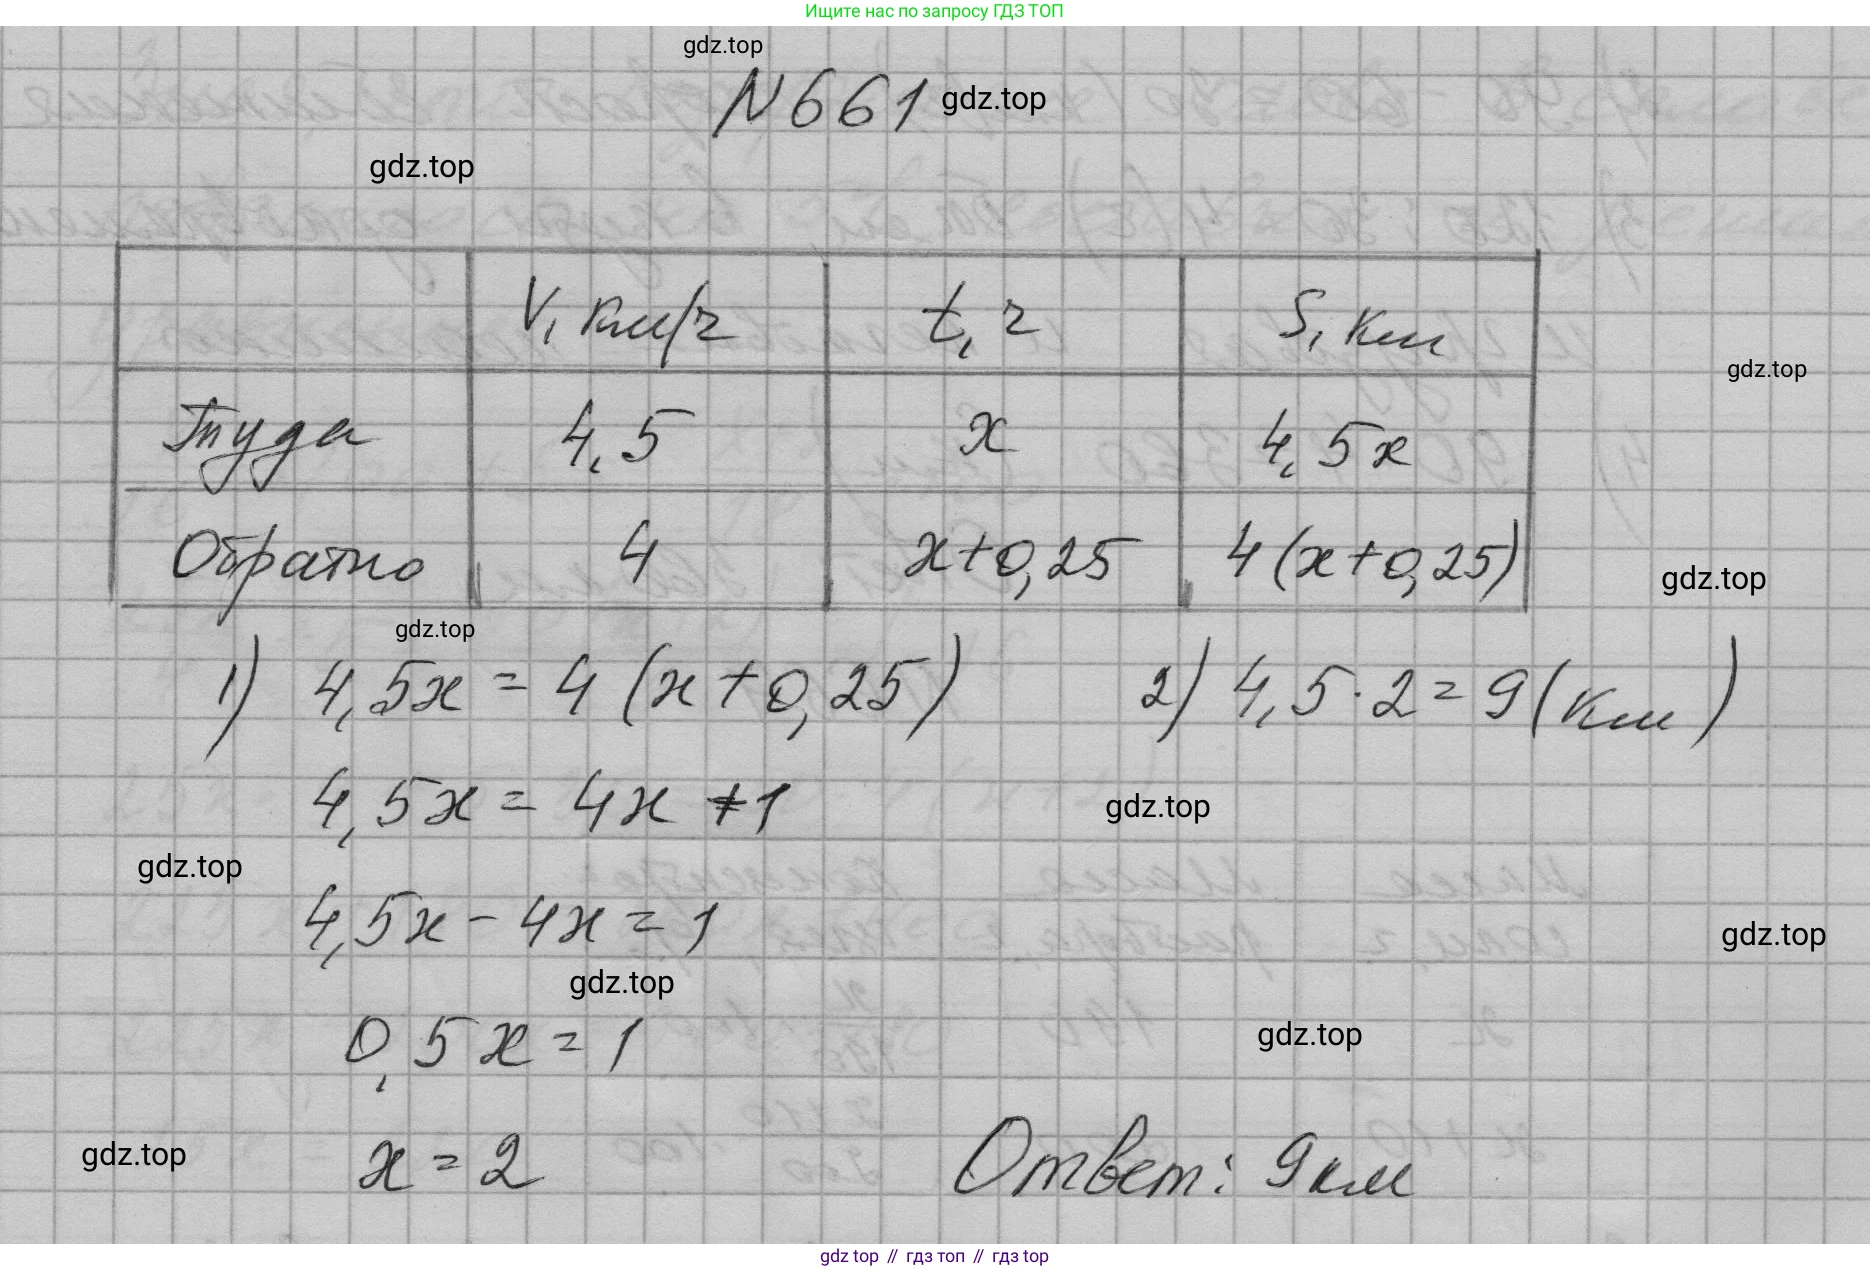 Ищите нас по запросу ГДЗ ТОП
gdz.top
N 661 gdz.top
gdz.top
V, км/ч t, ч S, км
gdz.top
Туда 4,5 x 4,5x
Обратно 4 x+0,25 4(x+0,25)
gdz.top
gdz.top
1) 4,5x = 4(x+0,25) 2) 4,5·2=9(км)
4,5x = 4x+1
gdz.top
gdz.top
4,5x-4x=1
gdz.top
gdz.top
0,5x=1
gdz.top
gdz.top
x=2 Ответ: 9км
gdz top // гдз топ // гдз top